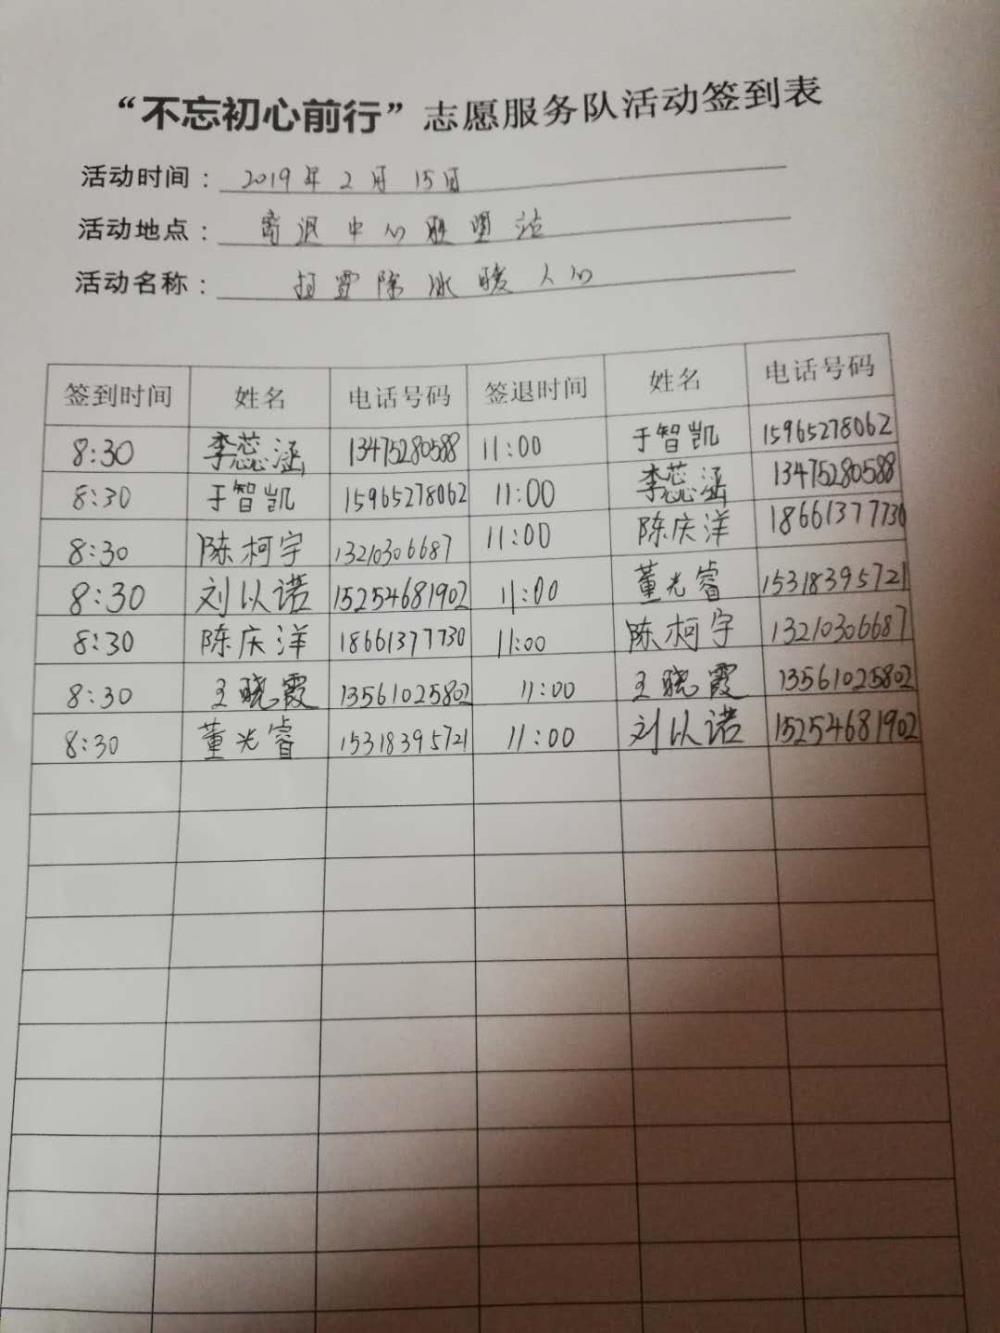 “不忘初心前行”志愿服务队活动签到表
活动时间：2019年2月15日
活动地点：离退中心联盟站
活动名称：扫雪除冰暖人心
签到时间 姓名 电话号码 签退时间 姓名 电话号码
8:30 李蕊涵 13475280588 11:00 于智凯 15965278062
8:30 于智凯 15965278062 11:00 李蕊涵 13475280588
8:30 陈柯宇 13210306687 11:00 陈庆洋 18661377730
8:30 刘以诺 15254681902 11:00 董光睿 15318395721
8:30 陈庆洋 18661377730 11:00 陈柯宇 13210306687
8:30 王晓霞 13561025802 11:00 王晓霞 13561025802
8:30 董光睿 15318395721 11:00 刘以诺 15254681902